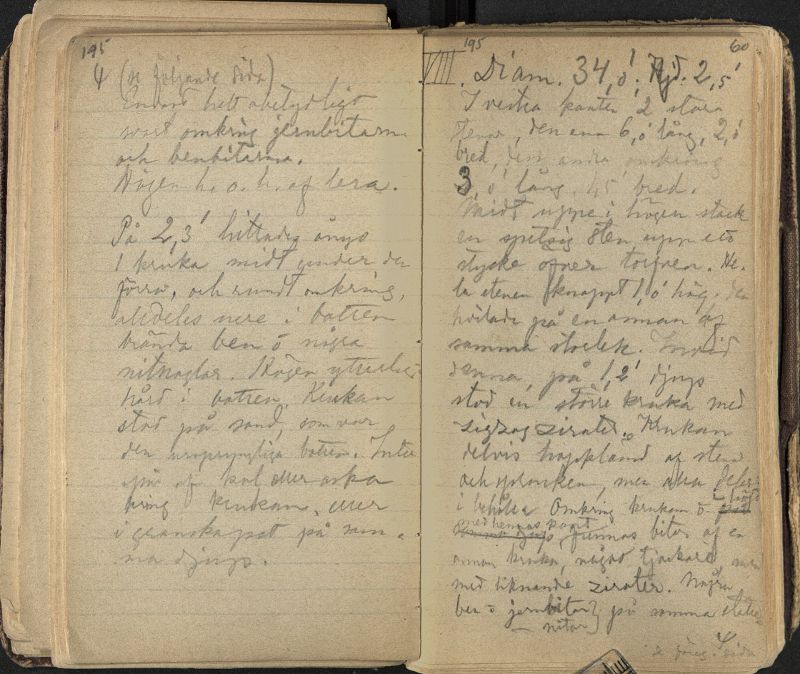 195
4 (se följande sida)
Endast helt obetydligt
svart omkring jernbitarna
och benbitarna.
Högen h. o. h. af lera.
På 2,3' hittades ännu
1 kruka midt under den
förra, och rundt omkring,
alldeles nere i botten
brända ben o några
nitnaglar. Högen ytterst
hård i botten. Krukan
stod på sand, som var
den ursprungliga botten. Intet
spår af kol eller aska
kring krukan, eller
i granskapet på sam-
ma djup.
195 60
VIII. Diam. 34,0'. Hjd. 2,5'
I vestra kanten 2 stora
stenar, den ena 6,0' lång, 2,0'
bred, den andra omkring
3,0' lång, 4,5' bred.
Midt uppe i högen stack
en spetsig sten upp ett
stycke öfver torfven. He-
la stenen knappt 1,0' hög, den
hvilade på en annan af
samma storlek. Invid
denna, på 1,2' djup
stod en större kruka med
zigzag zirater. Krukan
delvis hopklämd af sten
och sprucken, men alla delar
i behåll. Omkring krukan o
med hennes kant
funnos bitar af en
annan kruka, något tjockare, men
med liknande zirater. Några
ben o jernbitar på samma ställe
nitar
se föreg. sida